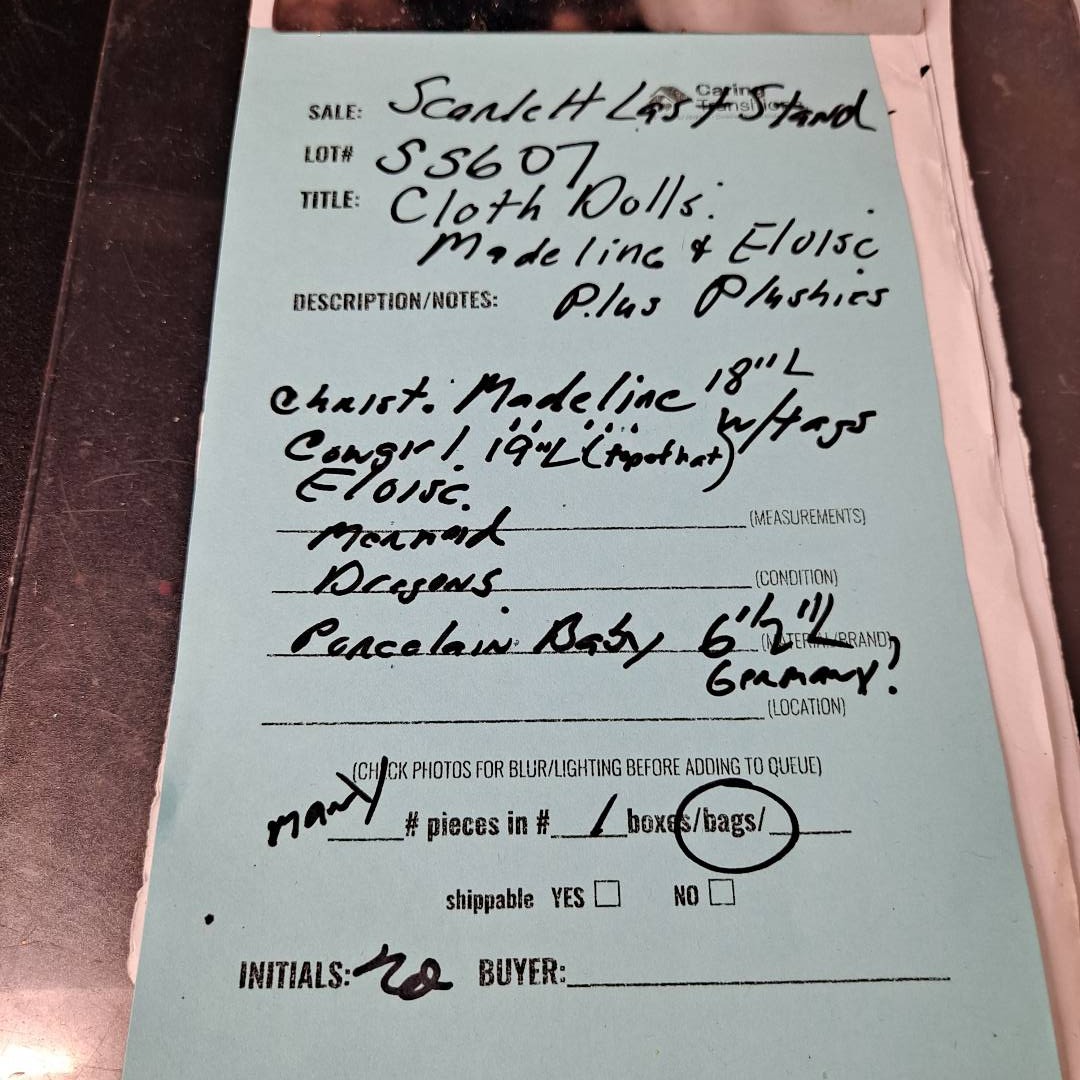 Caring
Transitions
SALE: Scarlett Last Stand
LOT# SS607
TITLE: Cloth Dolls:
Madeline & Eloise
DESCRIPTION/NOTES: Plus Plushies
Christ. Madeline 18"L
w/tags
Cowgirl 19"L (top of hat)
Eloise
(MEASUREMENTS)
Mermaid
Dragons
(CONDITION)
Porcelain Baby 6 1/2"L
(MATERIAL/BRAND)
Germany?
(LOCATION)
(CHECK PHOTOS FOR BLUR/LIGHTING BEFORE ADDING TO QUEUE)
many # pieces in # 1 boxes/bags/
shippable YES NO
INITIALS: BUYER: